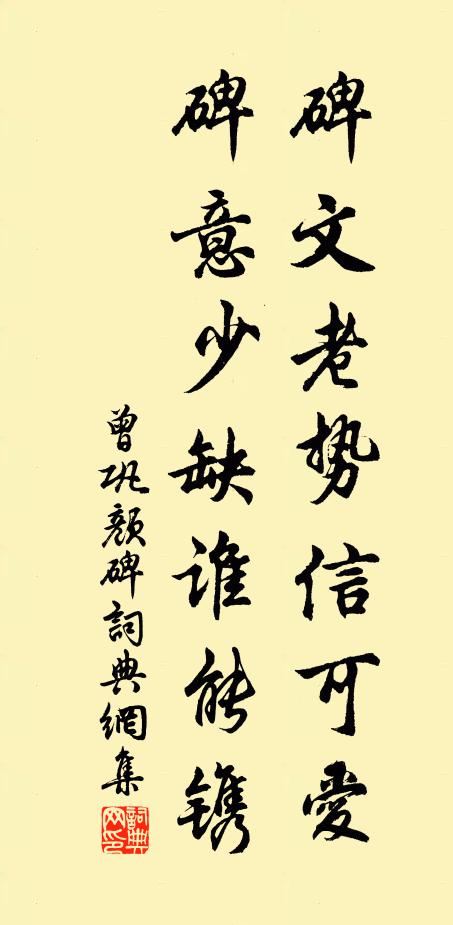 碑文老势信可爱
碑意少缺谁能镌
曾巩颜碑詞典網集
詞典网印